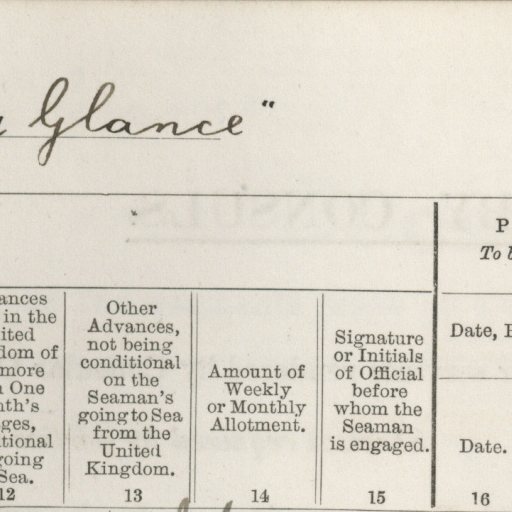 Glance"
P
To b
ances
in the
ited
dom of
more
One
nth's
ges,
itional
going
Sea.
12
Other
Advances,
not being
conditional
on the
Seaman's
going to Sea
from the
United
Kingdom.
13
Amount of
Weekly
or Monthly
Allotment.
14
Signature
or Initials
of Official
before
whom the
Seaman
is engaged.
15
Date, P
Date.
16